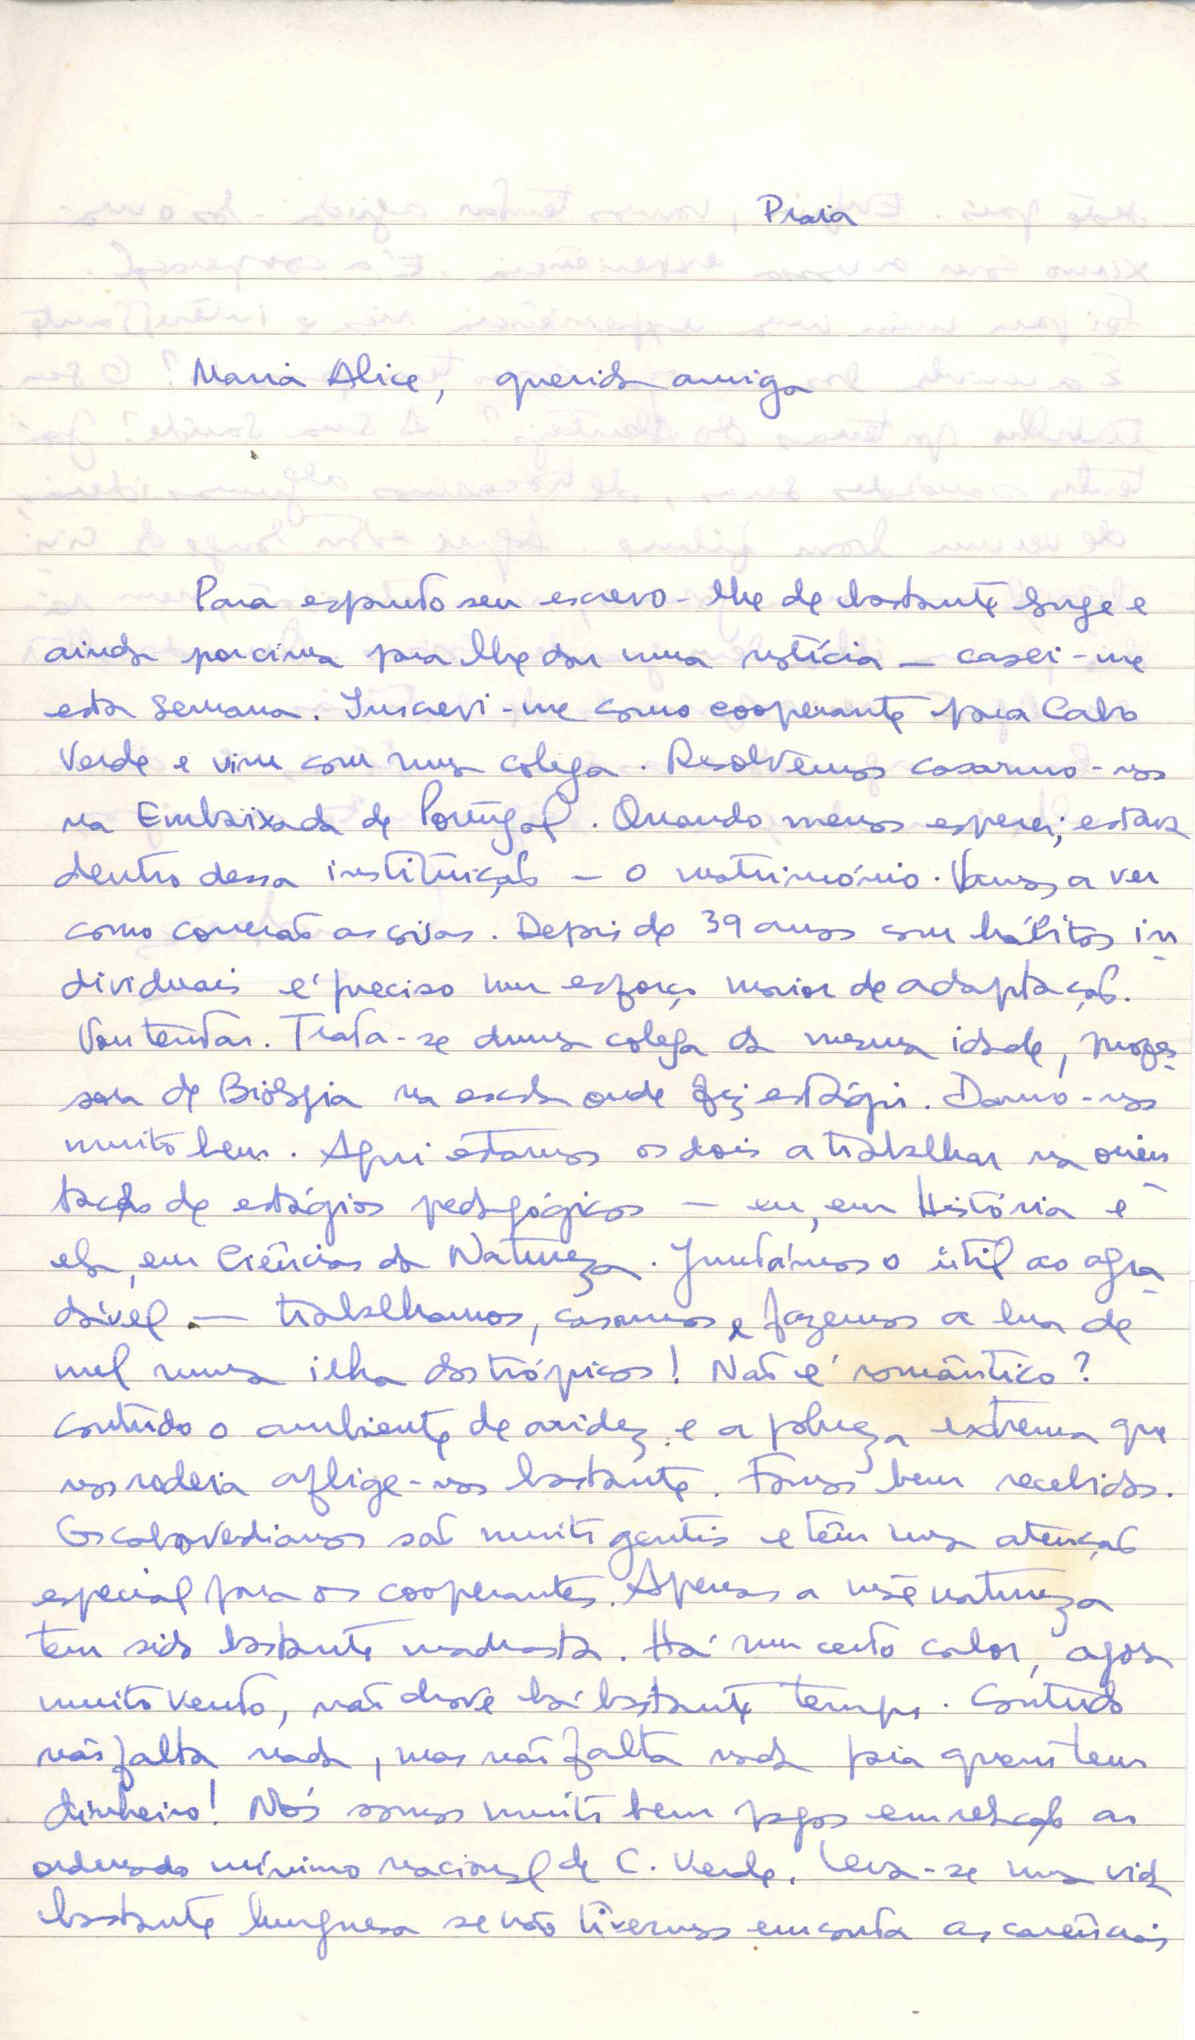 Praia
Maria Alice, querida amiga
Para espanto seu escrevo-lhe de bastante longe e
ainda por cima para lhe dar uma notícia — casei-me
esta semana. Inscrevi-me como cooperante para Cabo
Verde e vim com uma colega. Resolvemos casarmo-nos
na Embaixada de Portugal. Quando menos esperei, estava
dentro dessa instituição — o matrimónio. Vamos a ver
como correrão as coisas. Depois de 39 anos com hábitos in
dividuais é preciso um esforço maior de adaptação.
Vou tentar. Trata-se duma colega da mesma idade, profes
sora de Biologia na escola onde fiz estágio. Damo-nos
muito bem. Aqui estamos os dois a trabalhar na orien
tação de estágios pedagógicos — eu, em História e
ela, em Ciências da Natureza. Juntámos o útil ao agra
dável — trabalhamos, casamos e fazemos a lua de
mel numa ilha dos trópicos! Não é romântico?
Contudo o ambiente de aridez e a pobreza extrema que
nos rodeia aflige-nos bastante. Fomos bem recebidos.
Os caboverdianos são muito gentis e têm uma atenção
especial para os cooperantes. Apenas a mãe natureza
tem sido bastante madrasta. Há um certo calor, agora
muito vento, não chove há bastante tempo. Contudo
não falta nada, mas não falta nada para quem tem
dinheiro! Nós somos muito bem pagos em relação ao
ordenado mínimo nacional de C. Verde. Leva-se uma vida
bastante burguesa se não tivermos em conta as carências